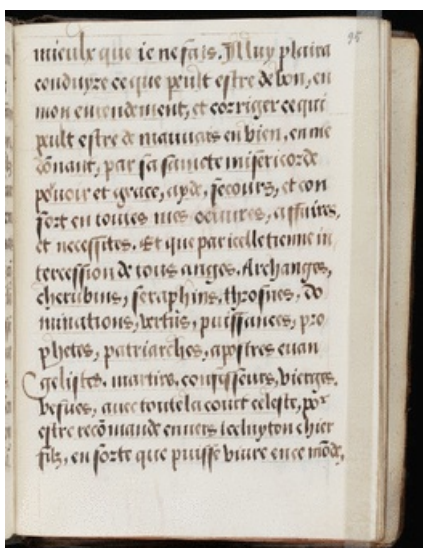 95
mieulx que ie ne sais. Il luy plaira
conduyre ce que peult estre de bon, en
mon entendement, et corriger ce qui
peult estre de mauuais en bien, en me
dōnant, par sa saincte misericorde
pouoir et grace, ayde, secours, et con
fort en toutes mes oeuures, affaires,
et necessites. Et que par icelle tienne in
tercession de tous anges. Archanges,
cherubins, seraphins, throsnes, do
minations, vertus, puissances, pro
phetes, patriarches, apostres euan
gelistes. martirs. confesseurs, vierges.
vefues, auec toute la court celeste, por
estre recōmande enuers icelluy ton chier
filz, en sorte que puisse viure en ce mōde,